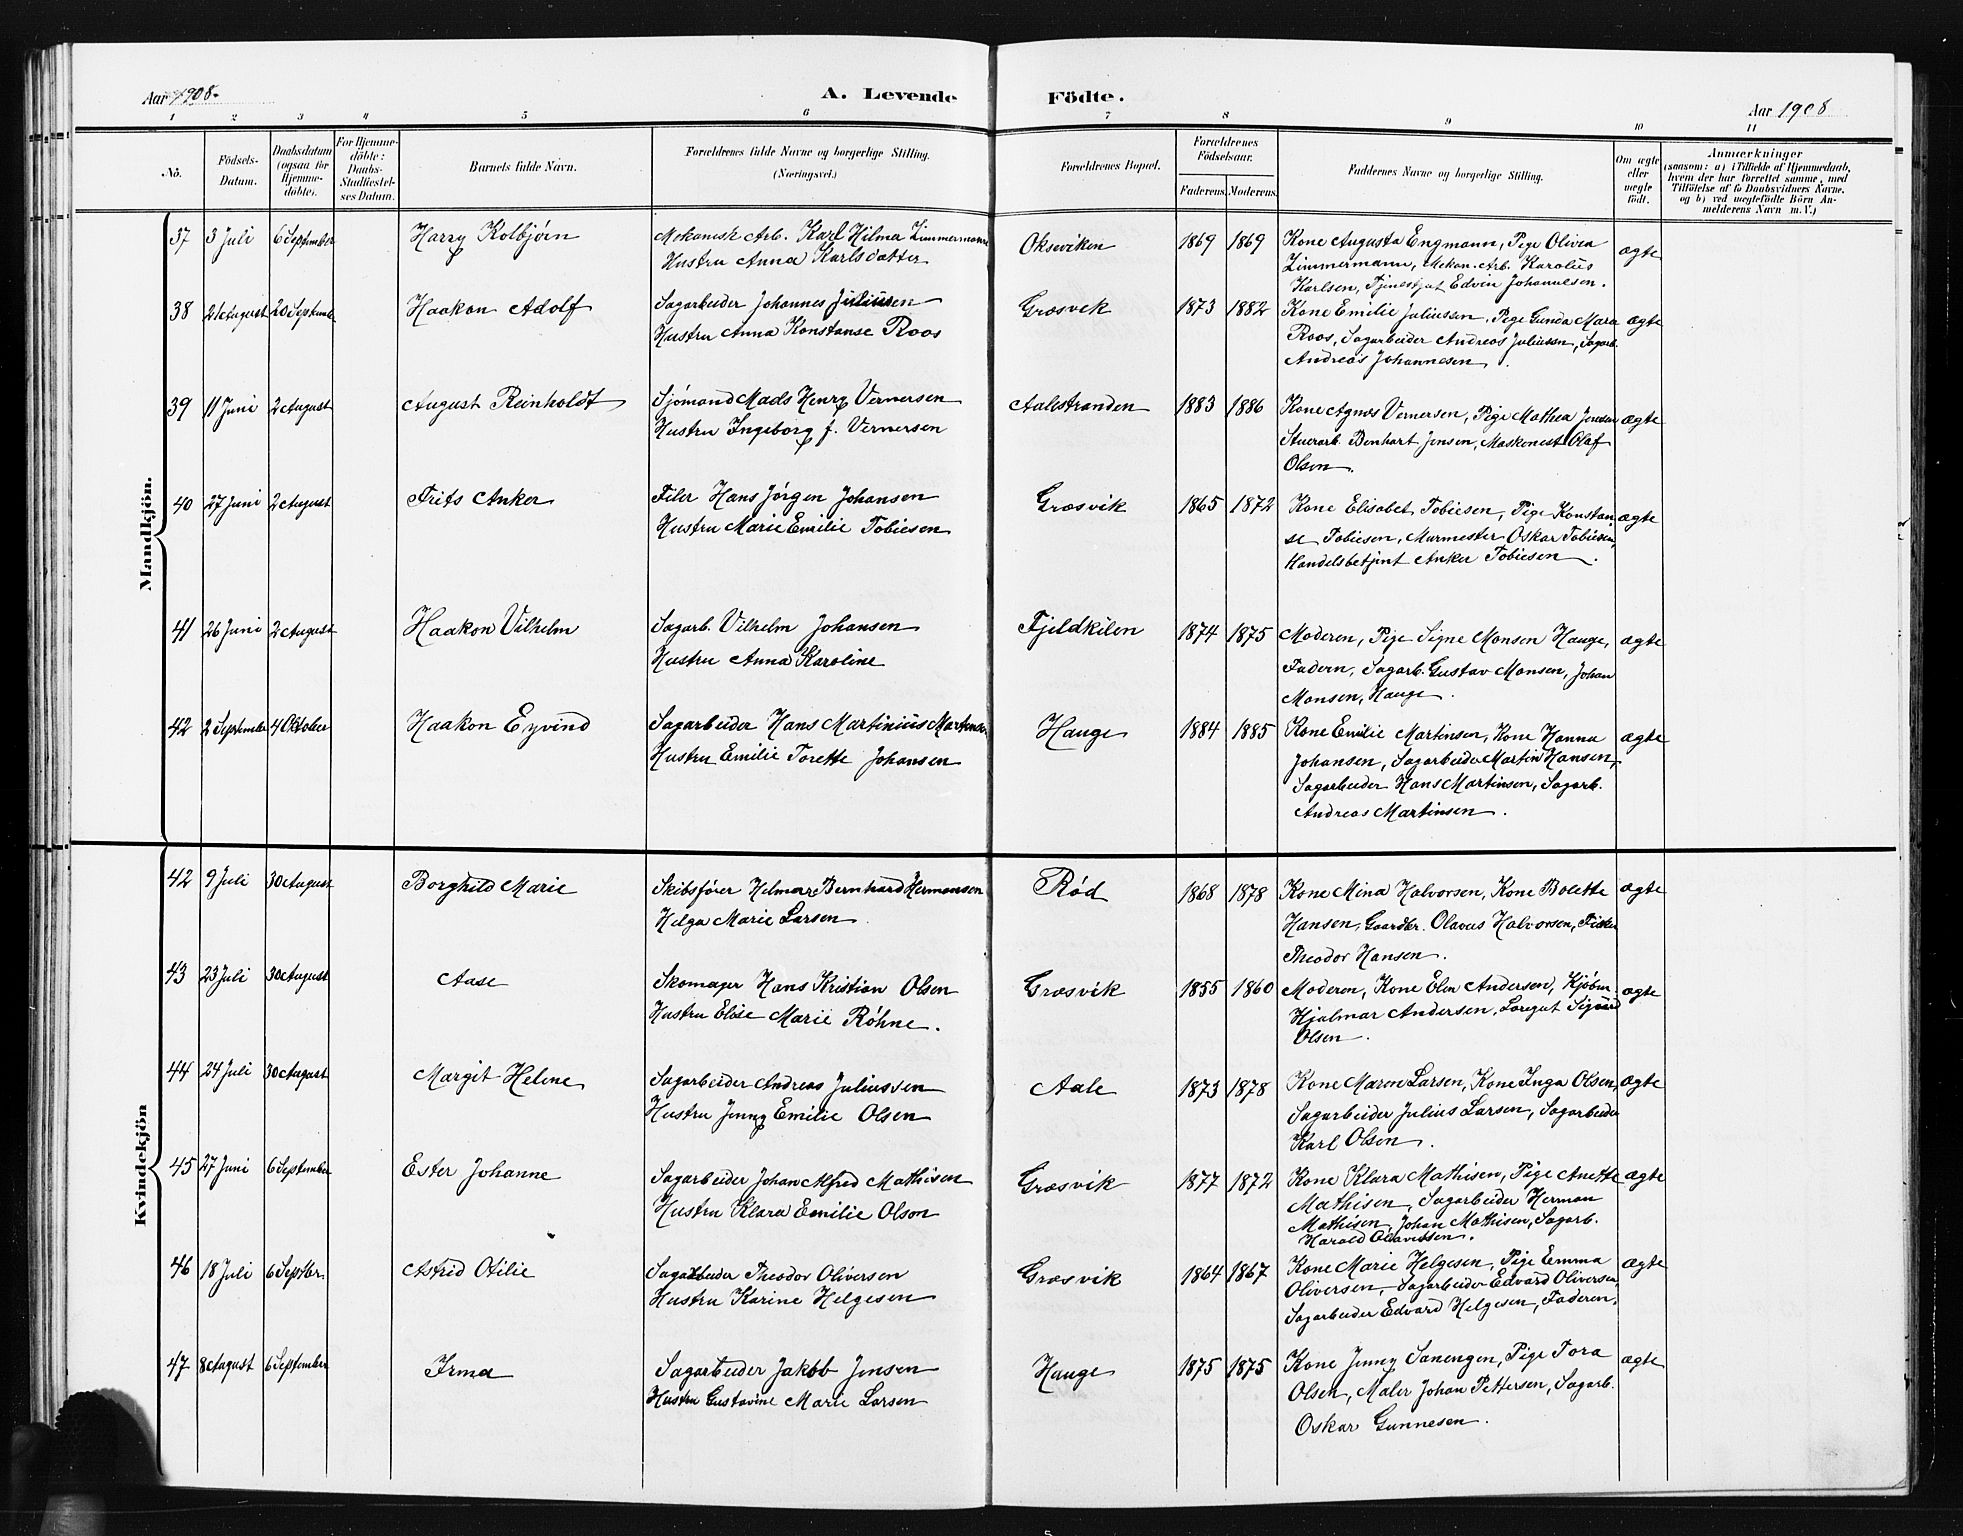 Aar 1908. A. Levende Födte. Aar 1908
1 2 3 4 5 6 7 8 9 10 11
No. Födsels-Datum. Daabsdatum (ogsaa for Hjemme-döbte). For Hjemme-döbte: Daabs-Stadfæstel-ses Datum. Barnets fulde Navn. Forældrenes fulde Navne og borgerlige Stilling. (Næringsvei.) Forældrenes Bopæl. Forældrenes Födselsaar. Faderens. Moderens. Faddernes Navne og borgerlige Stilling. Om ægte eller uægte födt. Anmærkninger (saasom: a) i Tilfælde af Hjemmedaab, hvem der har forrettet samme, med Tilföielse af to Daabsvidners Navne, og b) ved uægtefödte Börn An-melderens Navn m. V.)
Mandkjön.
37 3 Juli 6 September Harry Kolbjørn Mekanisk Arb. Karl Hilmar Zimmermann Oksviken 1869 1869 Kone Augusta Engmann, Pige Olivia ægte
Hustru Anna Karlsdatter Zimmermann, Mekan. Arb. Karolius
Karlsen, Tjenestgut Edvin Johannesen.
38 21 August 20 Septemb Haakon Adolf Sagarbeider Johannes Juliussen Græsvik 1873 1882 Kone Emilie Juliussen, Pige Gunda Mara ægte
Hustru Anna Konstanse Roos Roos, Sagarbeider Andreas Juliussen, Sagarb.
Andreas Johannesen.
39 11 Juni 2 August August Reinholdt Sjømand Mads Henry Vernersen Aalestranden 1883 1886 Kone Agnes Vernersen, Pige Mathea Jensen ægte
Hustru Ingeborg f. Vernersen Stuerarb. Benhart Jensen, Maskenest Olaf
Olsen.
40 27 Juni 2 August Frits Anker Filer Hans Jørgen Johansen Græsvik 1865 1872 Kone Elisabet Tobiesen, Pige Konstan- ægte
Hustru Marie Emilie Tobiesen se Tobiesen, Murmester Oskar Tobiesen,
Handelsbetjent Anker Tobiesen.
41 26 Juni 2 August Haakon Vilhelm Sagarb. Vilhelm Johansen Fjeldkilen 1874 1875 Moderen, Pige Signe Monsen Hauge, ægte
Hustru Anna Karoline Fadern, Sagarb. Gustav Monsen, Johan
Monsen, Hauge.
42 2 September 4 Oktober Haakon Eyvind Sagarbeider Hans Martinius Martinsen Hauge 1884 1885 Kone Emilie Martinsen, Kone Hanna ægte
Hustru Emilie Torette Johansen Johansen, Sagarbeider Martin Hansen,
Sagarbeider Hans Martinsen, Sagarb.
Andreas Martinsen.
Kvindekjön
42 9 Juli 30 August Borghild Marie Skibsfører Helmar Bernhard Hermansen Rød 1868 1878 Kone Mina Halvorsen, Kone Bolette ægte
Helga Marie Larsen Hansen, Gaardbr. Olavus Halvorsen, Fisker
Theodor Hansen.
43 23 Juli 30 August Aase Skomager Hans Kristian Olsen Græsvik 1855 1860 Moderen, Kone Elen Andersen, Kjøbm. ægte
Hustru Elise Marie Røhne. Hjalmar Andersen, Loregut Sigurd
Olsen.
44 24 Juli 30 August Margit Helene Sagarbeider Andreas Juliussen Aale 1873 1878 Kone Maren Larsen, Kone Inga Olsen, ægte
Hustru Jenny Emilie Olsen Sagarbeider Julius Larsen, Sagarbeider
Karl Olsen.
45 27 Juni 6 September Ester Johanne Sagarbeider Johan Alfred Mathisen Græsvik 1877 1872 Kone Klara Mathisen, Pige Anette ægte
Hustru Klara Emilie Olson Mathisen, Sagarbeider Herman
Mathisen, Johan Mathisen, Sagarb.
Harald Olavessen.
46 18 Juli 6 Septbr. Astrid Otilie Sagarbeider Theodor Oliversen Græsvik 1864 1867 Kone Marie Helgesen, Pige Emma ægte
Hustru Karine Helgesen Oliversen, Sagarbeider Edvard Oliversen,
Sagarbeider Edvard Helgesen, Faderen.
47 8 August 6 September Irma Sagarbeider Jakob Jensen Hauge 1875 1875 Kone Jenny Sanengen, Pige Tora ægte
Hustru Gustavine Marie Larsen Olsen, Maler Johan Pettersen, Sagarb.
Oskar Gunnesen.